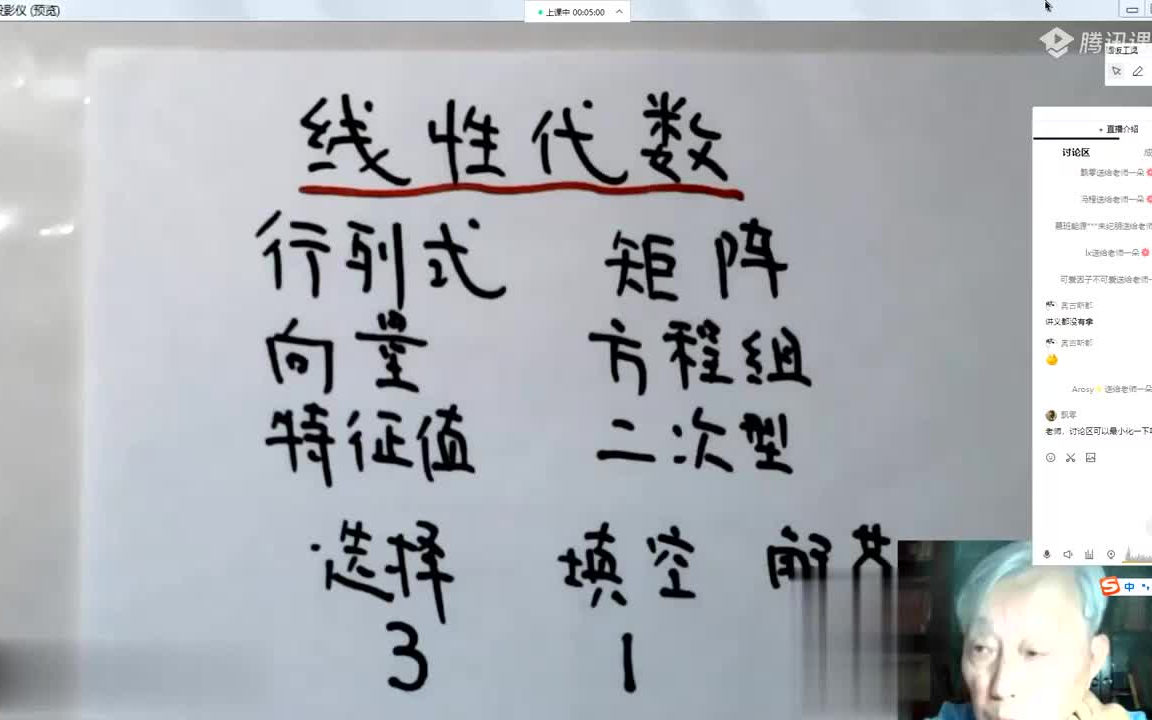 投影仪 (预览)
上课中 00:05:00
腾讯课
线性代数
行列式 矩阵
向量 方程组
特征值 二次型
选择 填空 解答
3 1
直播介绍
讨论区 成
飘零送给老师一朵
冯程送给老师一朵
lx送给老师一朵
可爱因子不可爱送给老师一
讲义都没有拿
Arosy 送给老师一朵
飘零
老师，讨论区可以最小化一下
中